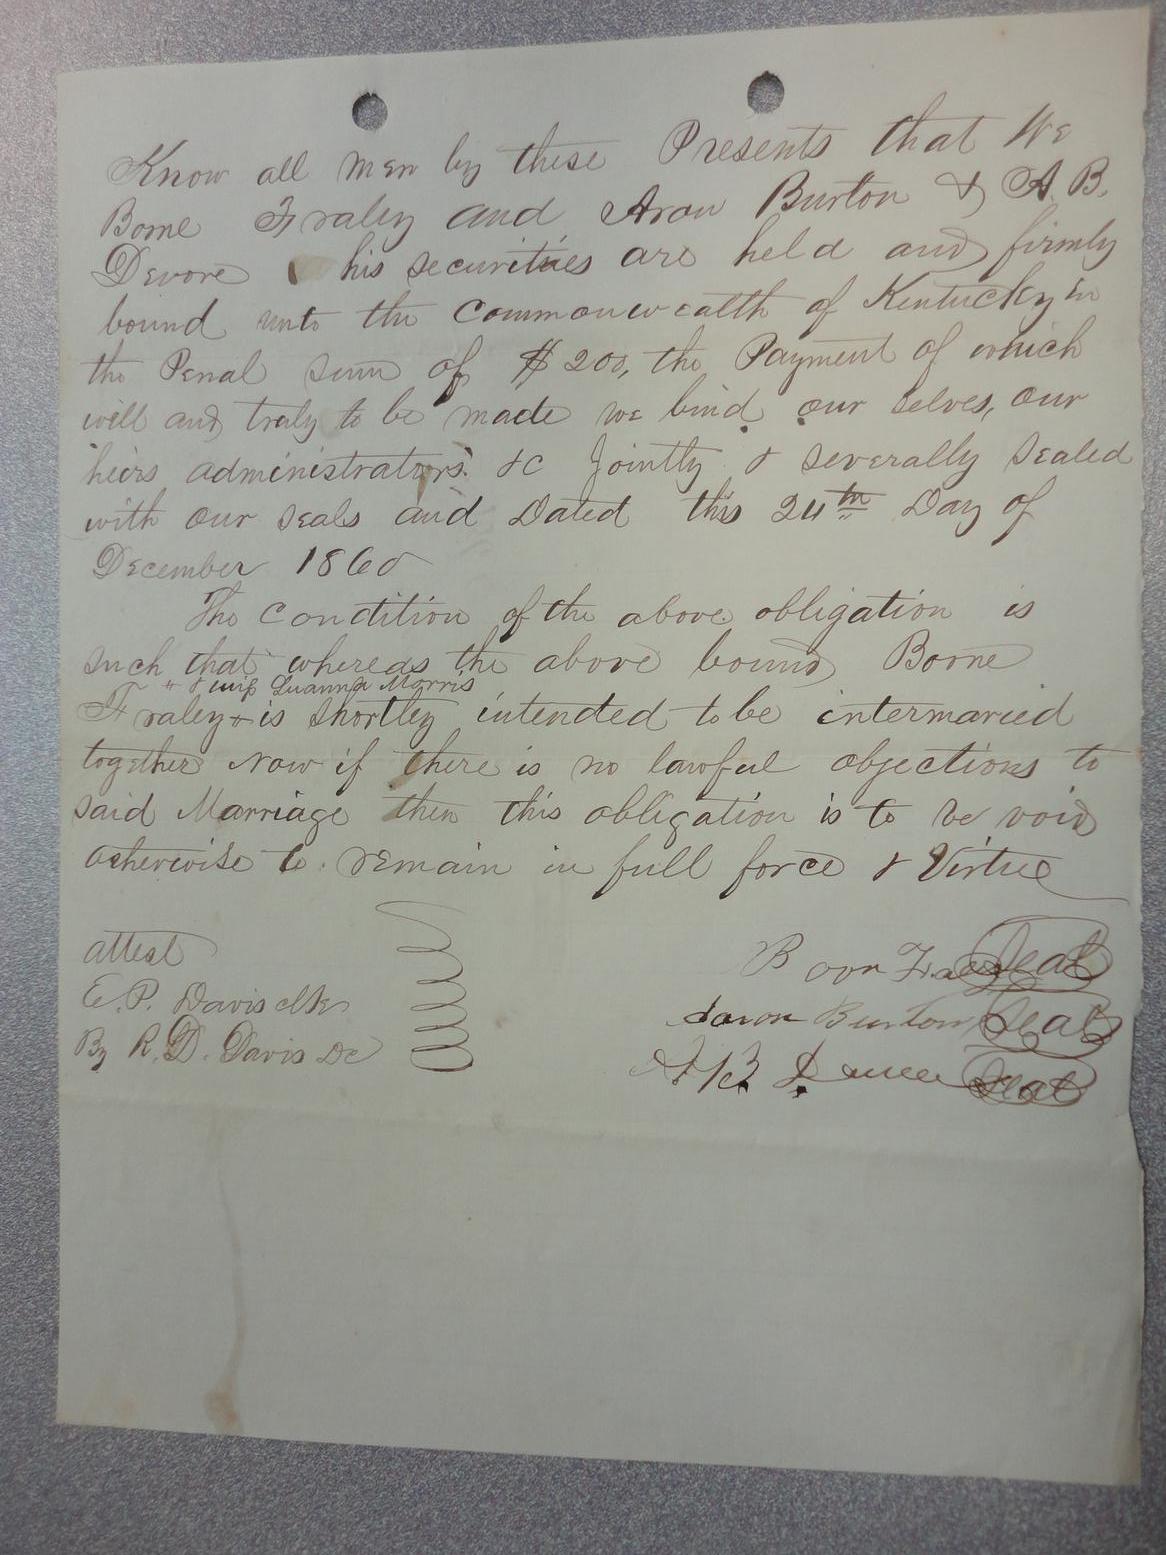 Know all men by these Presents that We
Borne Fraley and Aron Burton & A. B.
Devore his securities are held and firmly
bound unto the Commonwealth of Kentucky in
the Penal sum of $200, the Payment of which
will and truly to be made we bind our selves, our
heirs administrators &c Jointly & severally sealed
with our seals and Dated this 24th Day of
December 1860
The Condition of the above obligation is
such that whereas the above bound Borne
" & Luanna Morris
Fraley & is shortley intended to be intermaried
together Now if there is no lawful objections to
said Marriage then this obligation is to be void
otherwise to remain in full force & Virtue
attest
E. P. Davis clk
By R. D. Davis DC
Boon Fraley Seal
Aaron Burton Seal
A B Seal